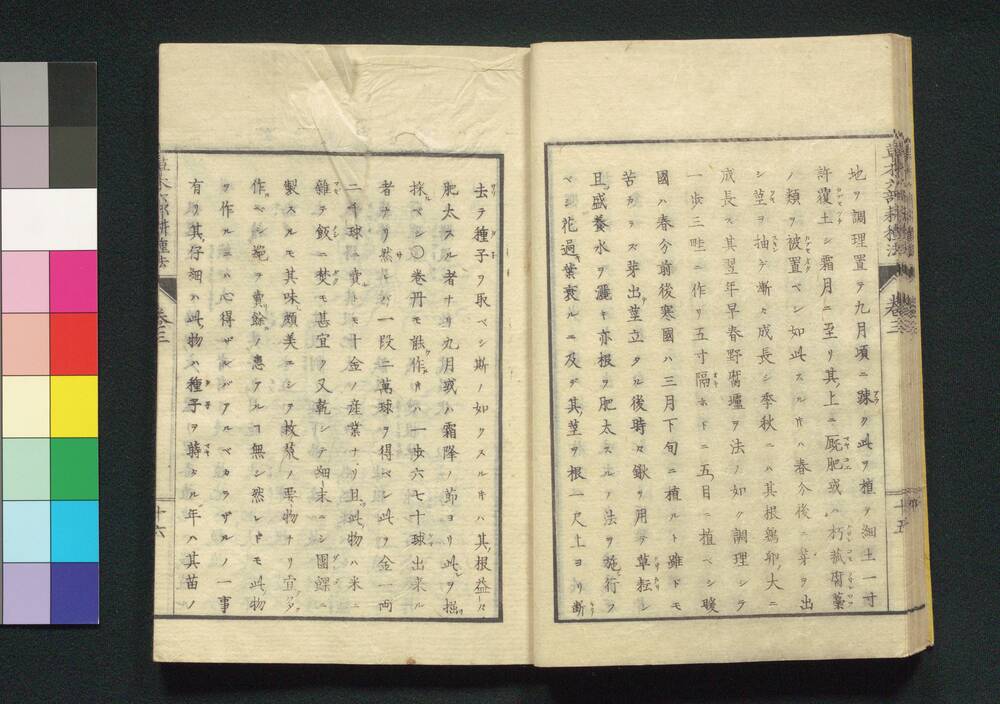 草木六部耕種法 卷三 十五
地ヲ調理置テ九月頃ニ疎ク此ヲ植ヲ細土一寸
許覆土シ霜月ニ至リ其上ニ厩肥或ハ朽菰腐藁
ノ類ヲ被置ベシ如此スル片ハ春分後ニ芽ヲ出
シ莖ヲ抽デ漸々成長シ季秋ニハ其根鶏卵大ニ
成長ス其翌年早春野腐壚ヲ法ノ如ク調理シテ
一歩三畦ニ作リ五寸隔ホドニ五目ニ植ベシ暖
國ハ春分前後寒國ハ三月下旬ニ植ルト雖ドモ
苦カラズ芽出莖立タル後時々鍬ヲ用テ草耘シ
且盛養水ヲ灑キ亦根ヲ肥太スルノ法ヲ施行ノ
ベシ花過葉衰ルニ及デ其莖ヲ根一尺上ヨリ断
去テ種子ヲ取ベシ斯ノ如クスル片ハ其根益々
肥太スル者ナリ九月或ハ霜降ノ節ヨリ此ヲ掘
採ベシ〇卷丹モ能作片ハ一歩六七十球出来ル
者ナリ然バ一段二萬球ヲ得ベシ此ヲ金一両
二千球ニ賣トモ十金ノ産業ナリ且此物ハ米ニ
雜テ飯ニ焚モ甚宜ヲ又乾シテ細末ニシ團餜ニ
製スルモ其味頗美ニシヲ救荒ノ要物ナリ宜多
作ベシ絶ヲ賣餘ノ患アルヿ無シ然レドモ此物
ヲ作ルニハ心得ザルバアルベカラザルノ一事
有リ其仔細ハ此物ハ種子ヲ蒔タル年ハ其苗ノ
草木六部耕種法 卷三 十六